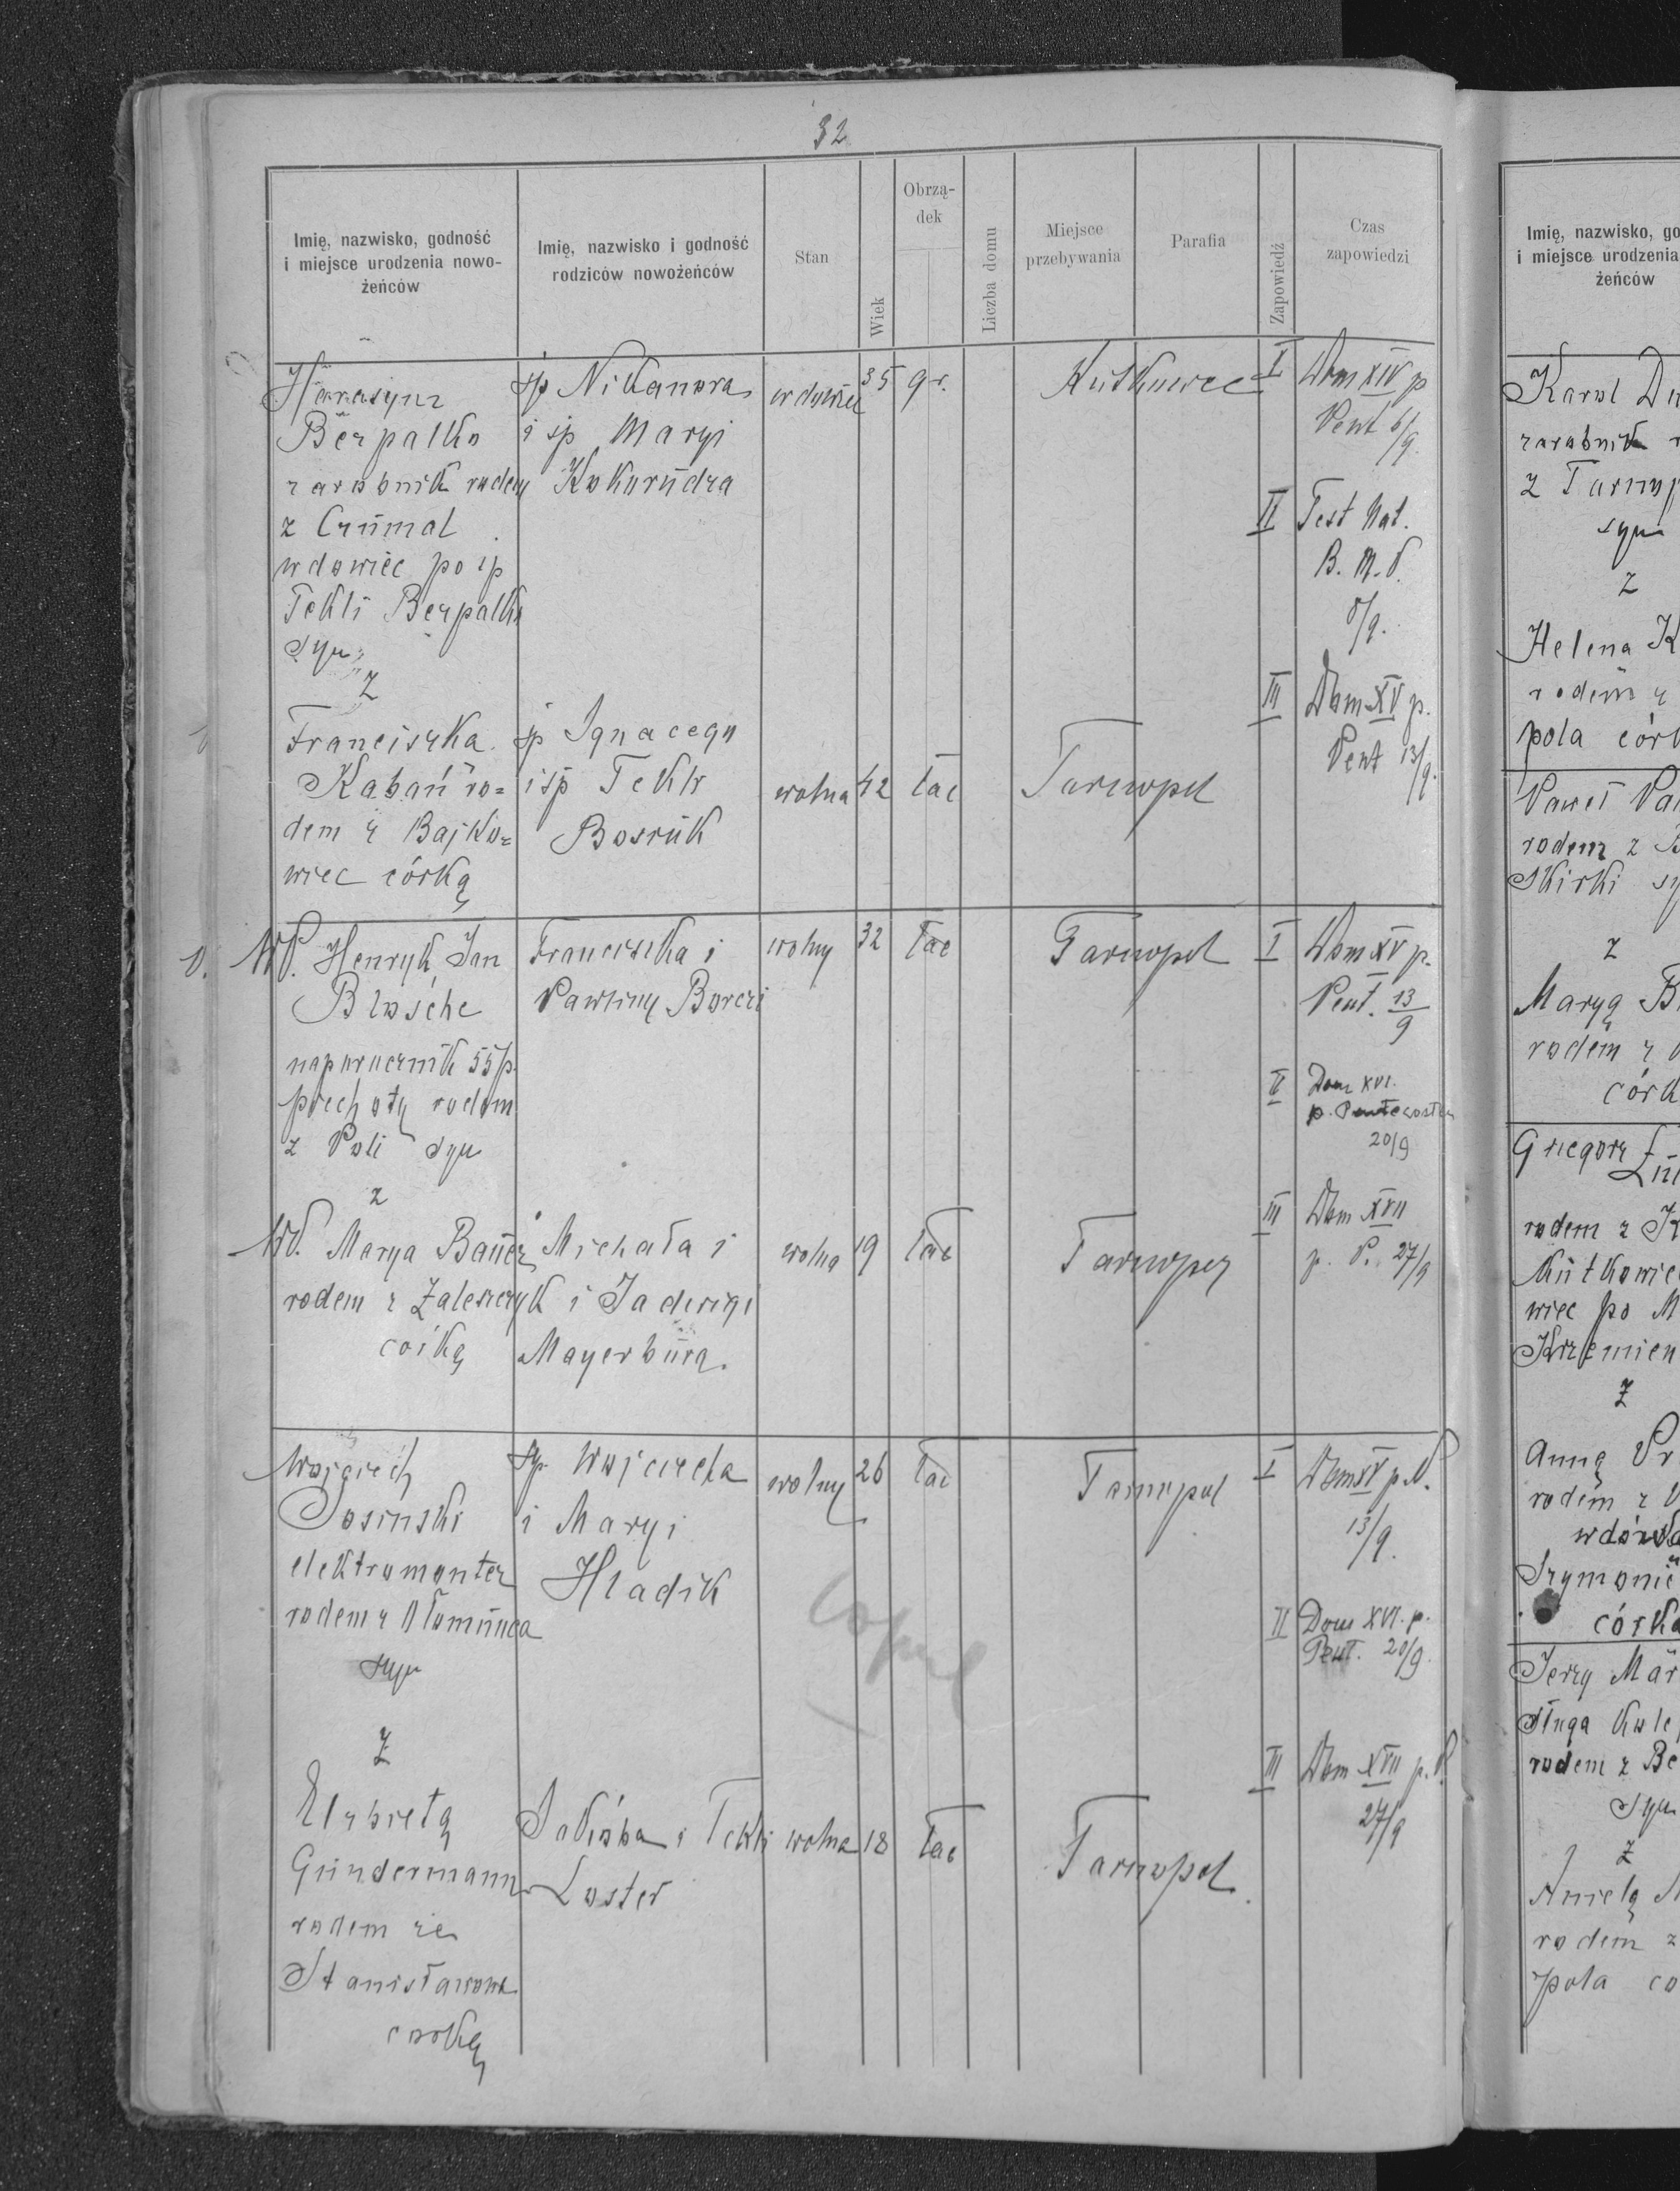 32
Imię, nazwisko, godność
i miejsce urodzenia nowo-
żeńców
Imię, nazwisko i godność
rodziców nowożeńców
Stan
Wiek
Obrzą-
dek
Liczba domu
Miejsce
przebywania
Parafia
Zapowiedź
Czas
zapowiedzi
Harasym
Berpalko
zarobnik rodem
z Czumal
wdowiec po śp
Tekli Berpalko
syn
z
śp Nikanora
i śp Maryi
Kokorudza
wdowiec
35
gr.
Kutkowce
I
Dom XIV p
Pent 6/9.
II
Fest Nat.
B. M. V.
8/9.
III
Dom XV p.
Pent 13/9.
Franciszka
Kabań ro=
dem z Bajko=
wiec córką
śp Ignacego
i śp Tekli
Bosruk
wolna
42
łac
Tarnopol
WP. Henryk Jan
Blosche
naporucznik 55 p.
piechoty rodem
z Poli syn
z
Franciszka i
Pawliny Borczi
wolny
32
łac
Tarnopol
I
Dom XV p.
Pent. 13/9
II
Dom XVI.
p. Pentecosten
20/9
III
Dom XVII
p. P. 27/9
WP. Marya Bauer
rodem z Zaleszczyk
córką
Michała i
i Jadwigi
Mayerburg.
wolna
19
łac
Wojciech
Sosinski
elektromonter
rodem z Ołomuńca
syn
z
śp. Wojciecha
i Maryi
Hladik
wolny
26
łac
Tarnopol
I
Dom XV p. P.
13/9.
II
Dom XVI. p.
Pent. 20/9.
III
Dom XVII p. P.
27/9
Elzbietą
Gundermann
rodem ze
Stanisławowa
corką
Jakóba i Tekli
Loster
wolna
18
łac
Tarnopol
Imię, nazwisko, go
i miejsce urodzenia
żeńców
Karol Du
zarobnik
z Tarnop
syn
z
Helena K
rodem z
pola córk
Paweł Pa
rodem z B
Skirki sy
z
Maryą B
rodem z
córk
Grzegorz
rodem z K
Kutkowie
wiec po M
Krzemien
z
Anną Pr
rodem z
wdówk
Szymonie
córka
Jerzy Mar
sługa Kole
rodem z Be
syn
z
Anielą
rodem z
pola co